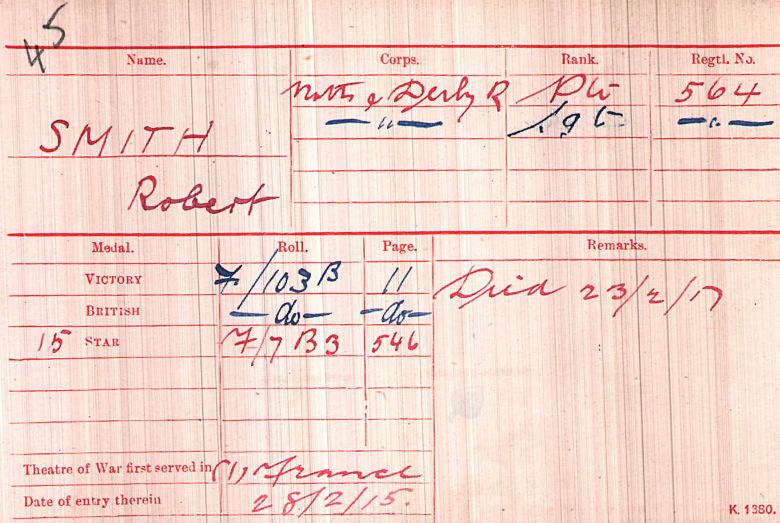 45
Name. Corps. Rank. Regtl. No.
Notts & Derby R Pte 564
SMITH — " — Sgt — " —
Robert
Medal. Roll. Page. Remarks.
VICTORY F/103B 11 Died 23/2/17
BRITISH —do— —do—
15 STAR F/7B3 546
Theatre of War first served in (1) France
Date of entry therein 28/2/15.
K. 1380.